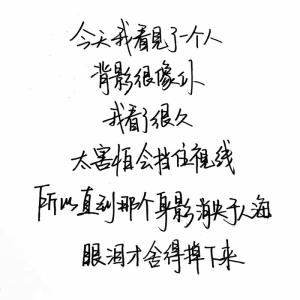 今天我看見了一个人
背影很像你
我看了很久
太害怕会挡住視线
所以直到那个身影消失于人海
眼泪才舍得掉下来